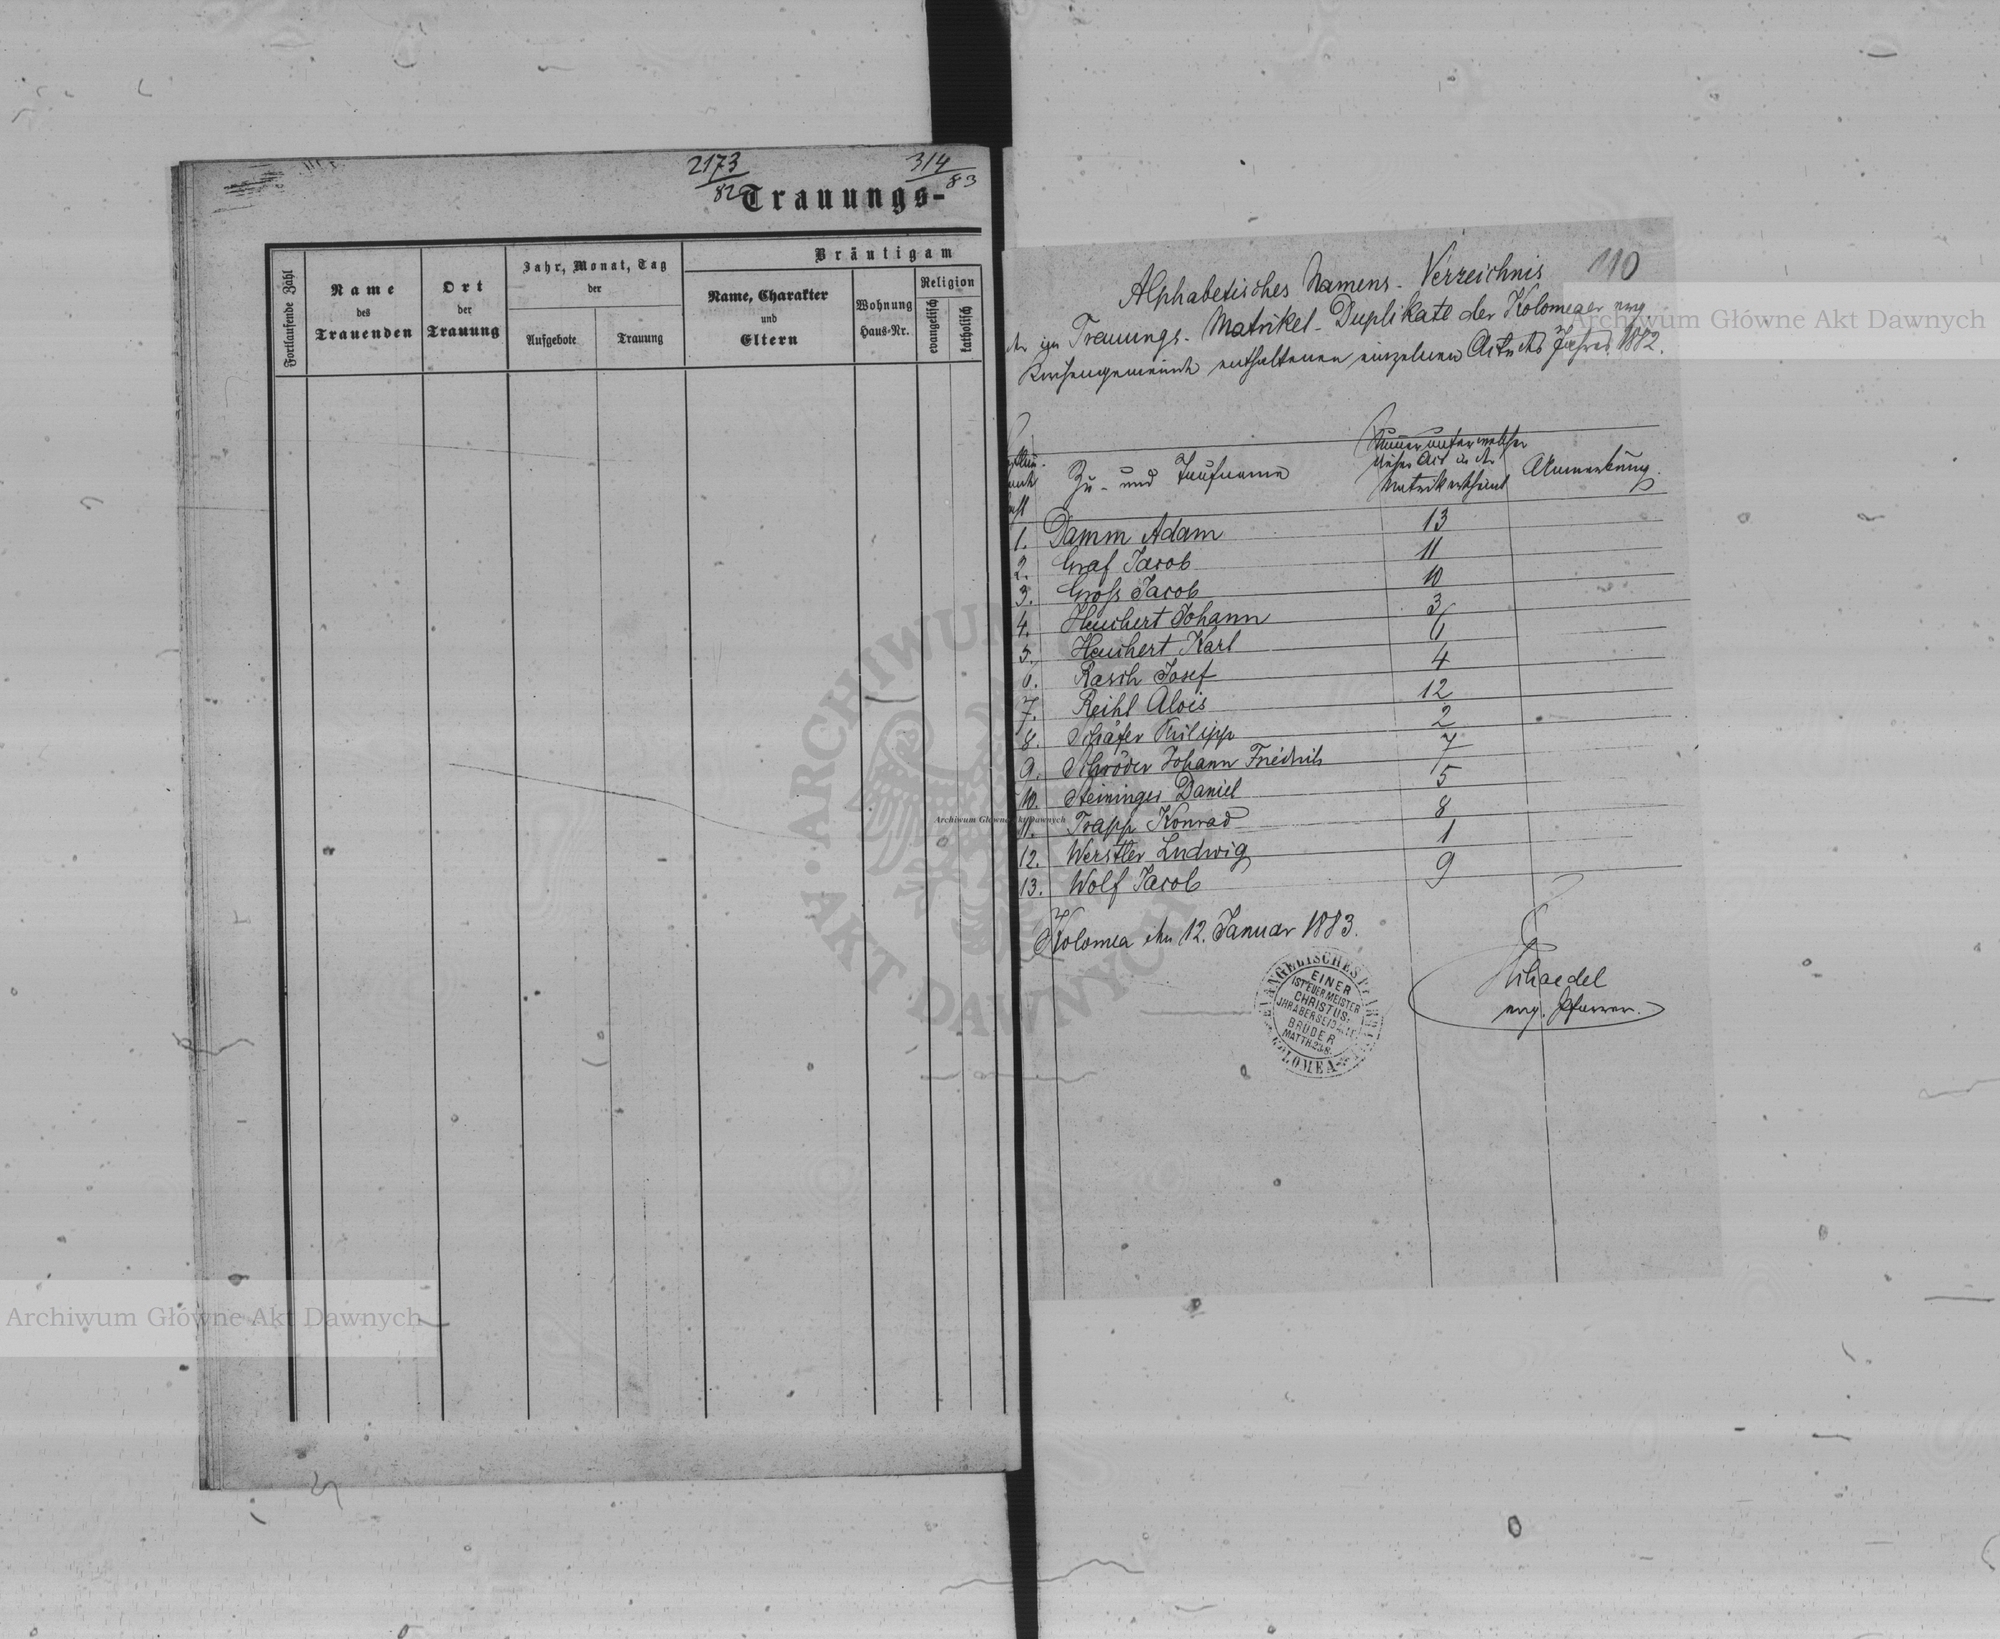 2173
82
314
83
Trauungs-
Fortlaufende Zahl
Name
des
Trauenden
Ort
der
Trauung
Jahr, Monat, Tag
der
Aufgebote
Trauung
Bräutigam
Name, Charakter
und
Eltern
Wohnung
Haus-Nr.
Religion
evangelisch
katholisch
110
Alphabetisches Namens-Verzeichnis
der im Trauungs-Matrikel-Duplikate der Kolomeaer evg.
Kirchengemeinde enthaltenen einzelnen Acte des Jahres 1882.
Zu- und Taufname
Nummer unter welcher
dieser Act in der
Matrik erscheint
Anmerkung.
1. Damm Adam 13
2. Graf Jacob 11
3. Groß Jacob 10
4. Heuchert Johann 3
5. Heuchert Karl 6
6. Rasch Josef 4
7. Reihl Alois 12
8. Schäfer Philipp 2
9. Schröder Johann Friedrich 7
10. Steininger Daniel 5
11. Trapp Konrad 8
12. Werstler Ludwig 1
13. Wolf Jacob 9
Kolomea den 12. Januar 1883.
EVANGELISCHES
EINER
IST EUER MEISTER
CHRISTUS,
IHR ABER SEID ALLE
BRÜDER
MATTH. 23.8.
KOLOMEA
evg. Pfarrer.
ARCHIWUM GŁÓWNE AKT DAWNYCH
Archiwum Główne Akt Dawnych
Archiwum Główne Akt Dawnych
Archiwum Główne Akt Dawnych